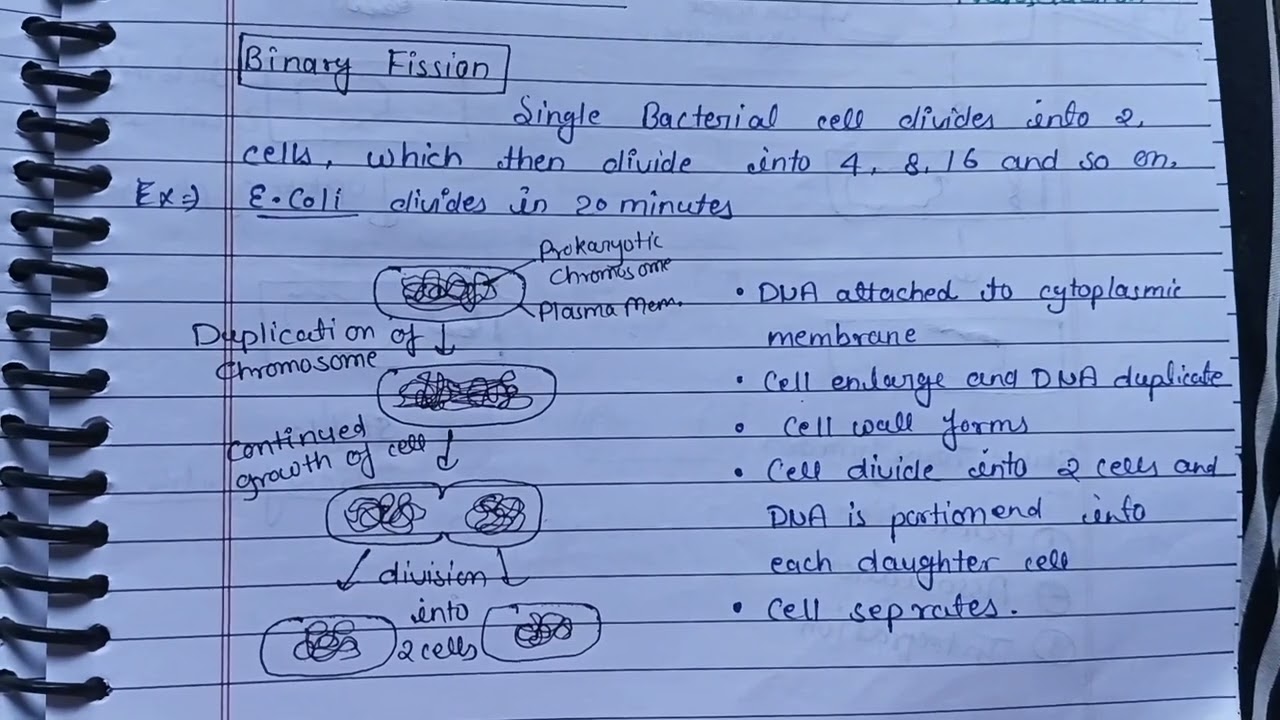 Binary Fission
Single Bacterial cell divides into 2,
cells, which then divide into 4, 8, 16 and so on.
Ex=> E.Coli divides in 20 minutes
Prokaryotic
Chromosome
Plasma Mem.
Duplication of
Chromosome
Continued
growth of cell
division
into
2 cells
• DNA attached to cytoplasmic
membrane
• Cell enlarge and DNA duplicate
• Cell wall forms
• Cell divide into 2 cells and
DNA is partionend into
each daughter cell
• Cell seprates.